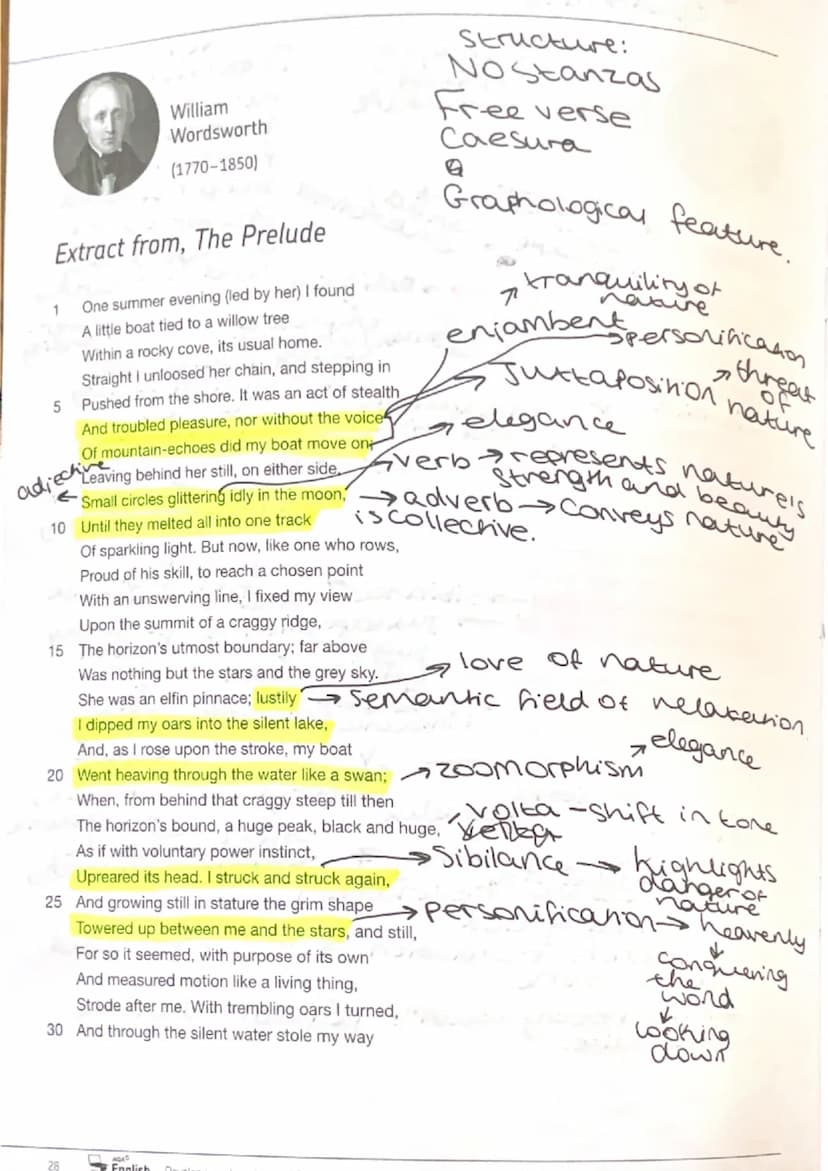 Structure:
No Stanzas
Free verse
Caesura
Graphological feature.
William
Wordsworth
(1770–1850)
Extract from, The Prelude
1 One summer evening (led by her) I found
A little boat tied to a willow tree
Within a rocky cove, its usual home.
Straight I unloosed her chain, and stepping in
5 Pushed from the shore. It was an act of stealth
And troubled pleasure, nor without the voice
Of mountain-echoes did my boat move on;
Leaving behind her still, on either side,
Small circles glittering idly in the moon,
10 Until they melted all into one track
Of sparkling light. But now, like one who rows,
Proud of his skill, to reach a chosen point
With an unswerving line, I fixed my view
Upon the summit of a craggy ridge,
15 The horizon's utmost boundary; far above
Was nothing but the stars and the grey sky.
She was an elfin pinnace; lustily
I dipped my oars into the silent lake,
And, as I rose upon the stroke, my boat
20 Went heaving through the water like a swan;
When, from behind that craggy steep till then
The horizon's bound, a huge peak, black and huge,
As if with voluntary power instinct,
Upreared its head. I struck and struck again,
25 And growing still in stature the grim shape
Towered up between me and the stars, and still,
For so it seemed, with purpose of its own
And measured motion like a living thing,
Strode after me. With trembling oars I turned,
30 And through the silent water stole my way
tranquility of
nature
enjambent
personification
Juxtaposition
threat
of
nature
elegance
adjective
verb → represents nature's
strength and beauty
is collective.
adverb → conveys nature
love of nature
semantic field of relaxation
elegance
zoomorphism
volta – shift in tone
Sibilance → highlights
danger of
nature
personification → heavenly
conquering
the
word
looking
down
28
AQA
English